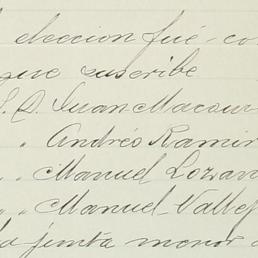 eleccion fué co
que suscribe
S. D. Juan Macou
" Andrés Ramir
" " Manuel Lozan
" " Manuel Vallej
la junta menor